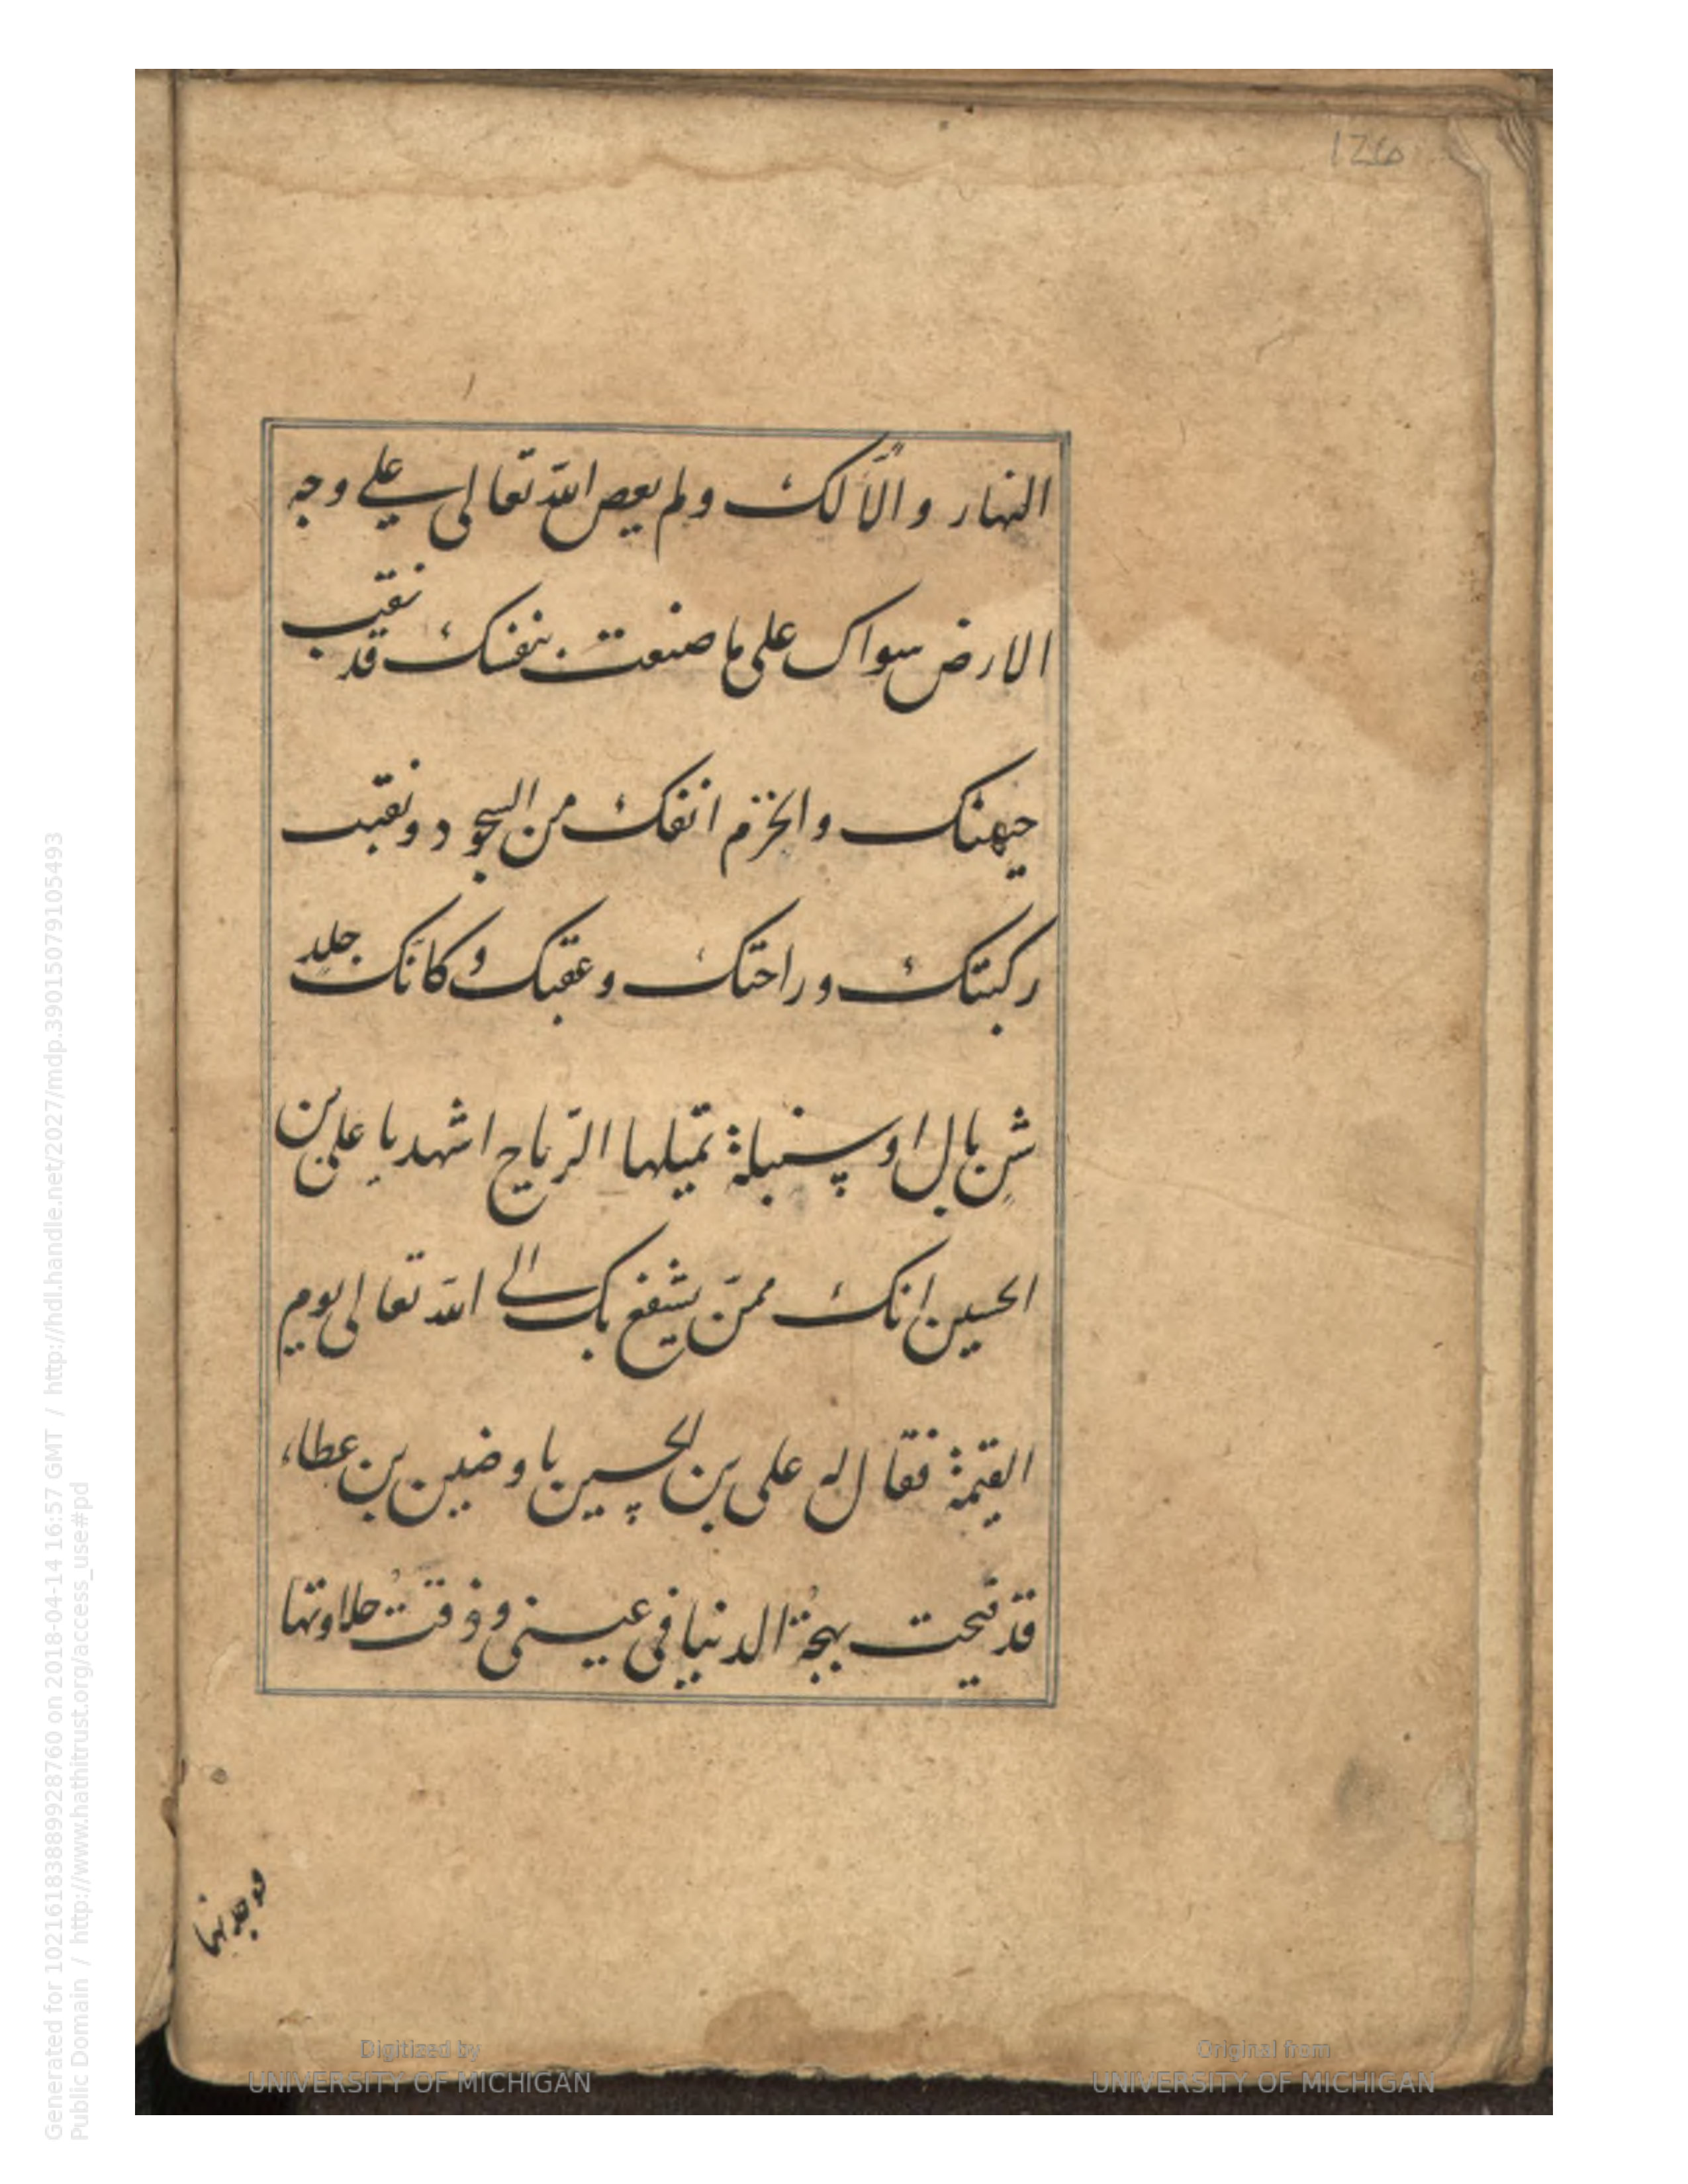 126
النهار والّا لك ولم يعص الله تعالى على وجه
الارض سواك على ما صنعت بنفسك قد نقبت
جبهتك والخزم انفك من السجود ونقبت
ركبتك وراحتك وعقبك وكانك جلد
شن بال او سنبلة تميلها الرياح اشهد يا على بن
الحسين انك ممن يشفع بك الى الله تعالى يوم
القيمة فقال له على بن الحسين يا وضين بن عطاء
قد قبحت بهجة الدنيا فى عينى وذقت حلاوتها
فوجدتها
Digitized by
UNIVERSITY OF MICHIGAN
Original from
UNIVERSITY OF MICHIGAN
Generated for 102161838899928760 on 2018-04-14 16:57 GMT / http://hdl.handle.net/2027/mdp.39015079105493
Public Domain / http://www.hathitrust.org/access_use#pd